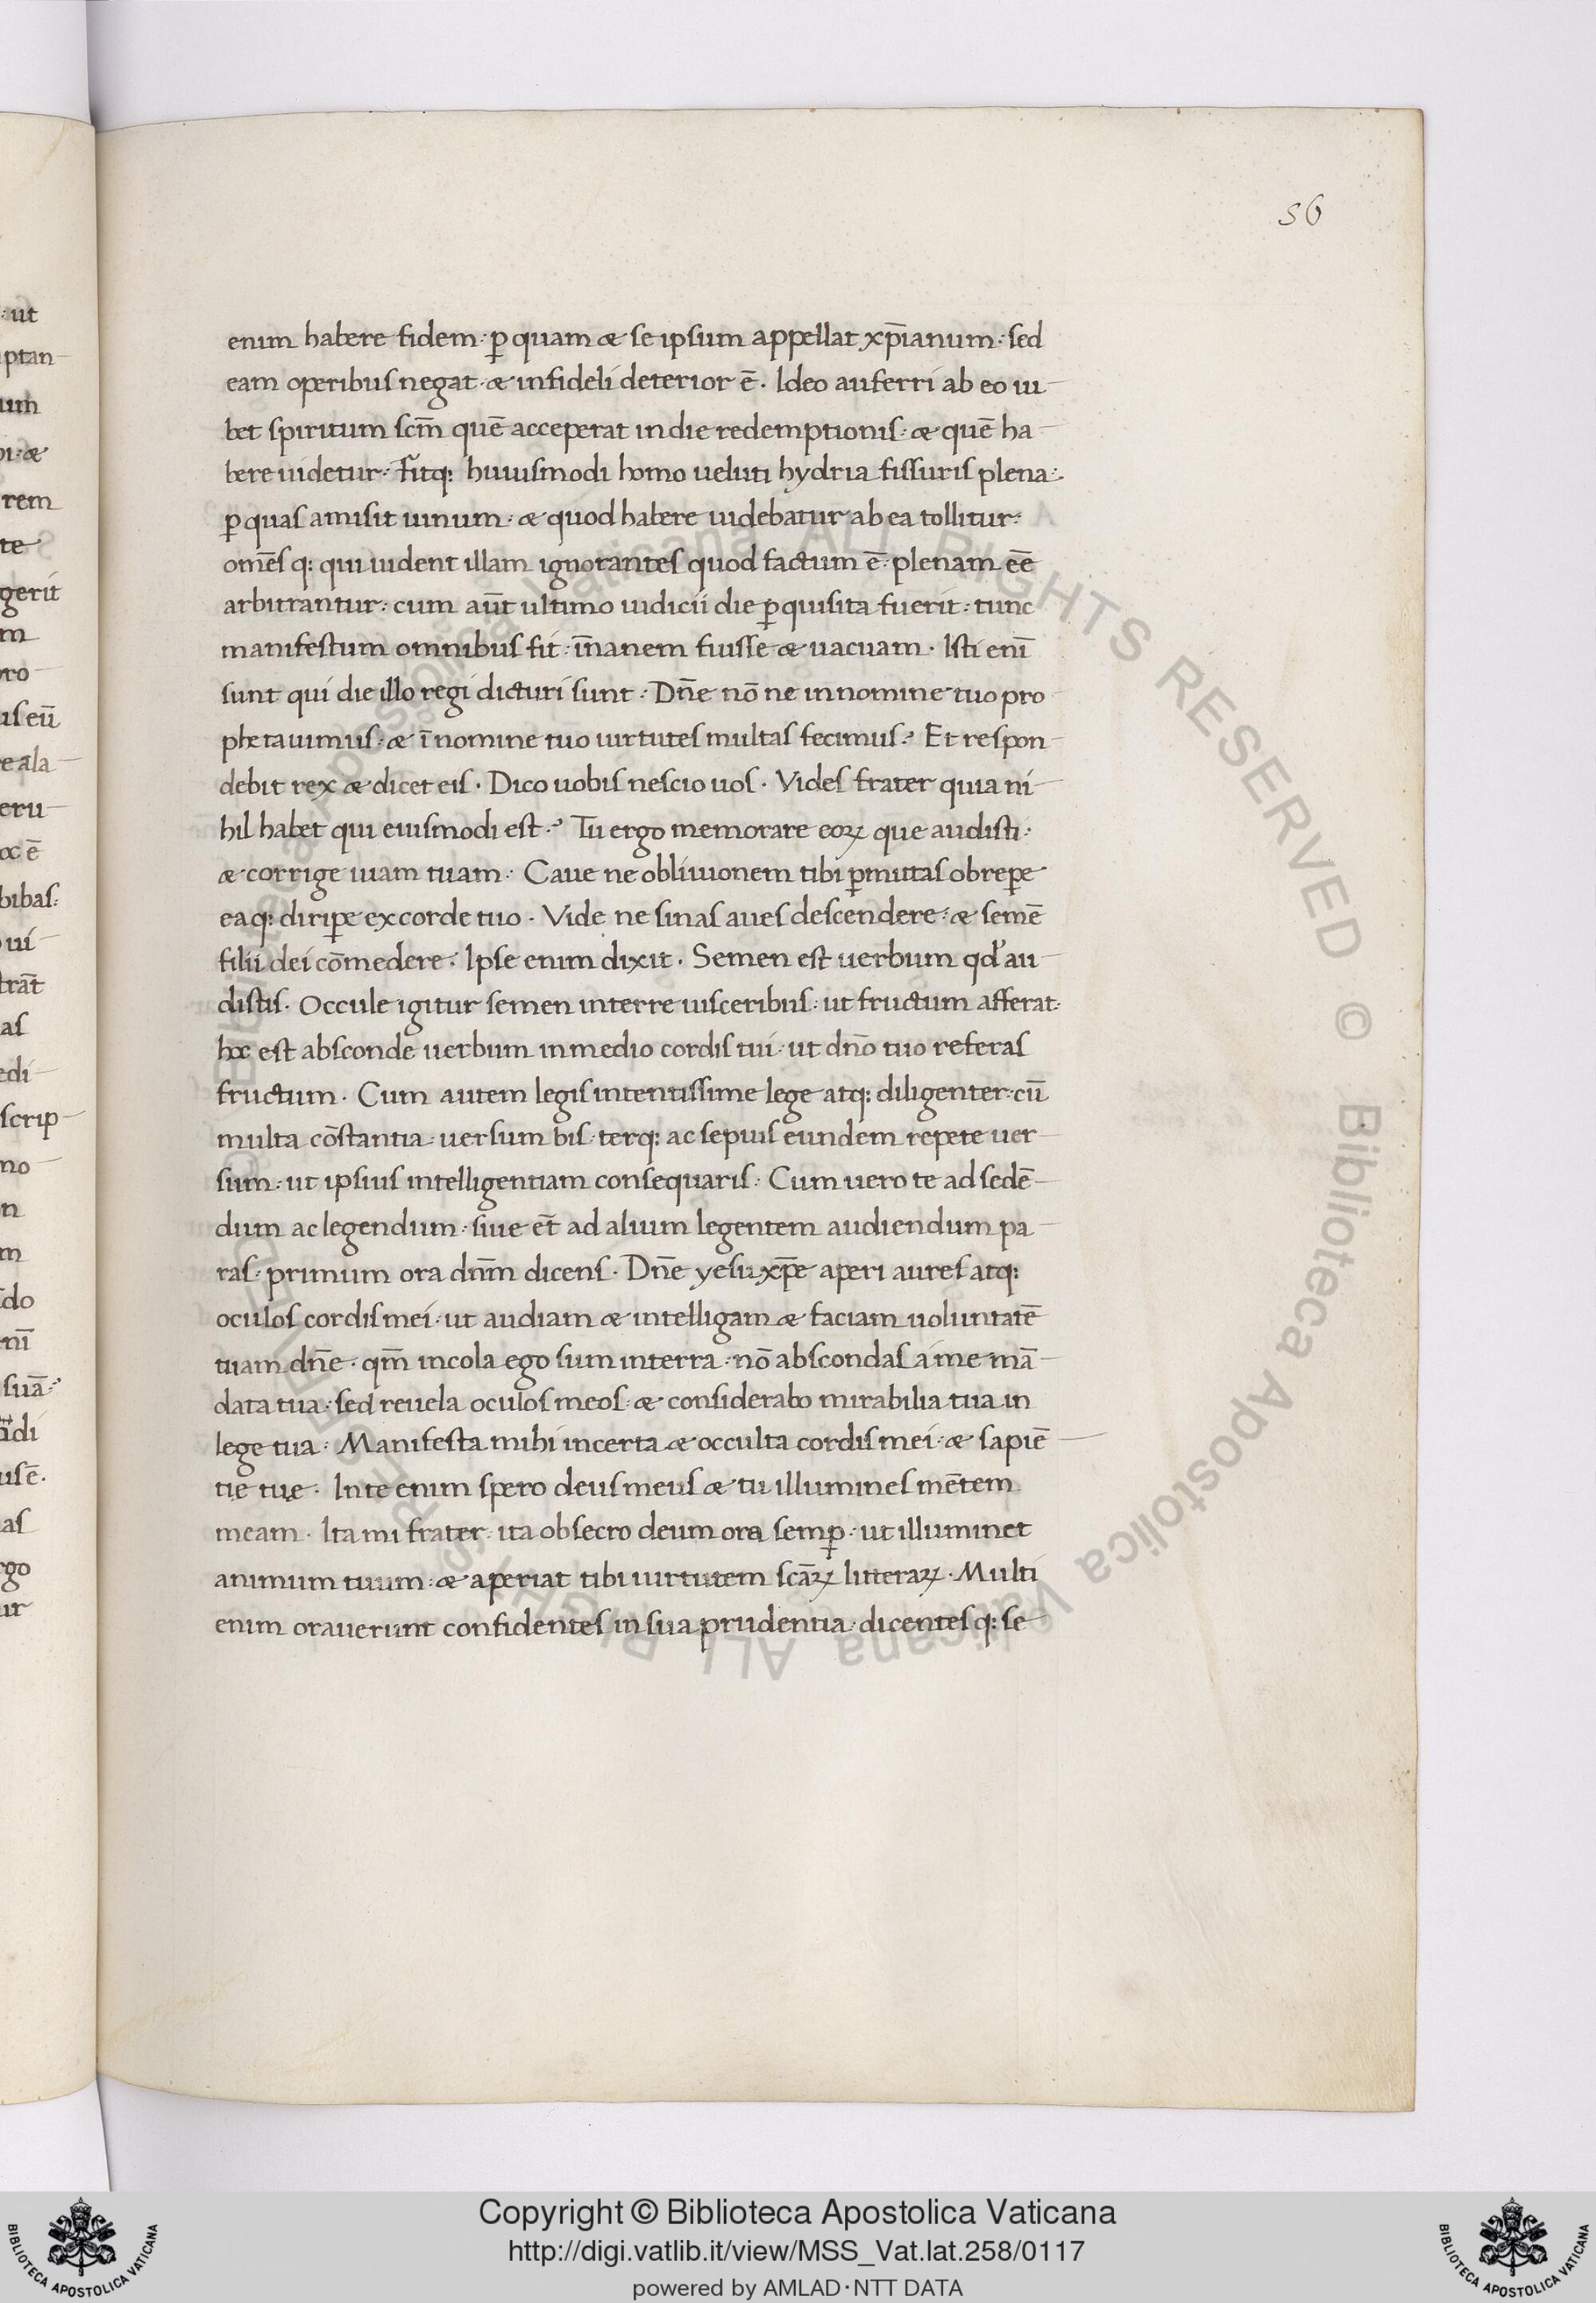 56
enim habere fidem: p̱ quam & se ipsum appellat xp̄ianum: sed
eam operibus negat: & infideli deterior ē. Ideo auferri ab eo iu-
bet spiritum scm̄ quē acceperat in die redemptionis: & quē ha-
bere uidetur: Fitq: huiusmodi homo ueluti hydria fissuris plena:
p̱ quas amisit uinum: & quod habere uidebatur ab ea tollitur:
omēs q: qui uident illam ignorantes quod factum ē: plenam eē
arbitrantur: cum aūt ultimo iudicii die p̱quisita fuerit: tunc
manifestum omnibus fit: īnanem fuisse & uacuam. Isti enī
sunt qui die illo regi dicturi sunt: Dn̄e nō ne in nomine tuo pro
phetauimus: & ī nomine tuo uirtutes multas fecimus? Et respon-
debit rex & dicet eis. Dico uobis nescio uos. Vides frater quia ni-
hil habet qui eiusmodi est? Tu ergo memorare eoꝝ que audisti:
& corrige uiam tuam: Caue ne obliuionem tibi p̱mittas obrep̱e
eaq: dirip̱e ex corde tuo. Vide ne sinas aues descendere: & semē
filii dei cōmedere: Ipse enim dixit. Semen est uerbum qd' au-
distis. Occule igitur semen in terre uisceribus: ut fructum afferat:
hoc est absconde uerbum in medio cordis tui: ut dn̄o tuo referas
fructum. Cum autem legis intentissime lege atq: diligenter: cū
multa cōstantia: uersum bis terq: ac sepius eundem repete uer-
sum: ut ipsius intelligentiam consequaris: Cum uero te ad sedē-
dum ac legendum: siue et̄ ad alium legentem audiendum pa-
ras: primum ora dn̄m dicens. Dn̄e yesu xp̄e aperi aures atq:
oculos cordis mei: ut audiam & intelligam & faciam uoluntatē
tuam dn̄e. qm̄ incola ego sum in terra: nō abscondas a me mā-
data tua: sed reuela oculos meos: & considerabo mirabilia tua in
lege tua: Manifesta mihi incerta & occulta cordis mei: & sapiē-
tię tuę. In te enim spero deus meus & tu illumines mētem
meam. Ita mi frater: ita obsecro deum ora semp̱: ut illuminet
animum tuum: & aperiat tibi uirtutem scāꝝ litteraꝝ. Multi
enim orauerunt confidentes in sua prudentia: dicentes q: se
Copyright © Biblioteca Apostolica Vaticana
http://digi.vatlib.it/view/MSS_Vat.lat.258/0117
powered by AMLAD·NTT DATA